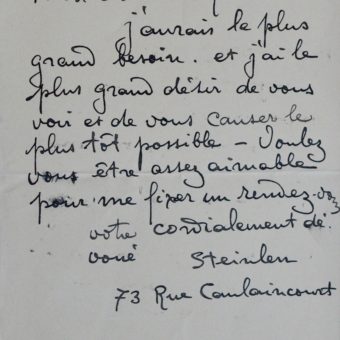 j'aurais le plus
grand besoin. et j'ai le
plus grand désir de vous
voir et de vous causer le
plus tôt possible – Voulez
vous être assez aimable
pour me fixer un rendez-vous
votre cordialement dé.
voué Steinlen
73 Rue Caulaincourt